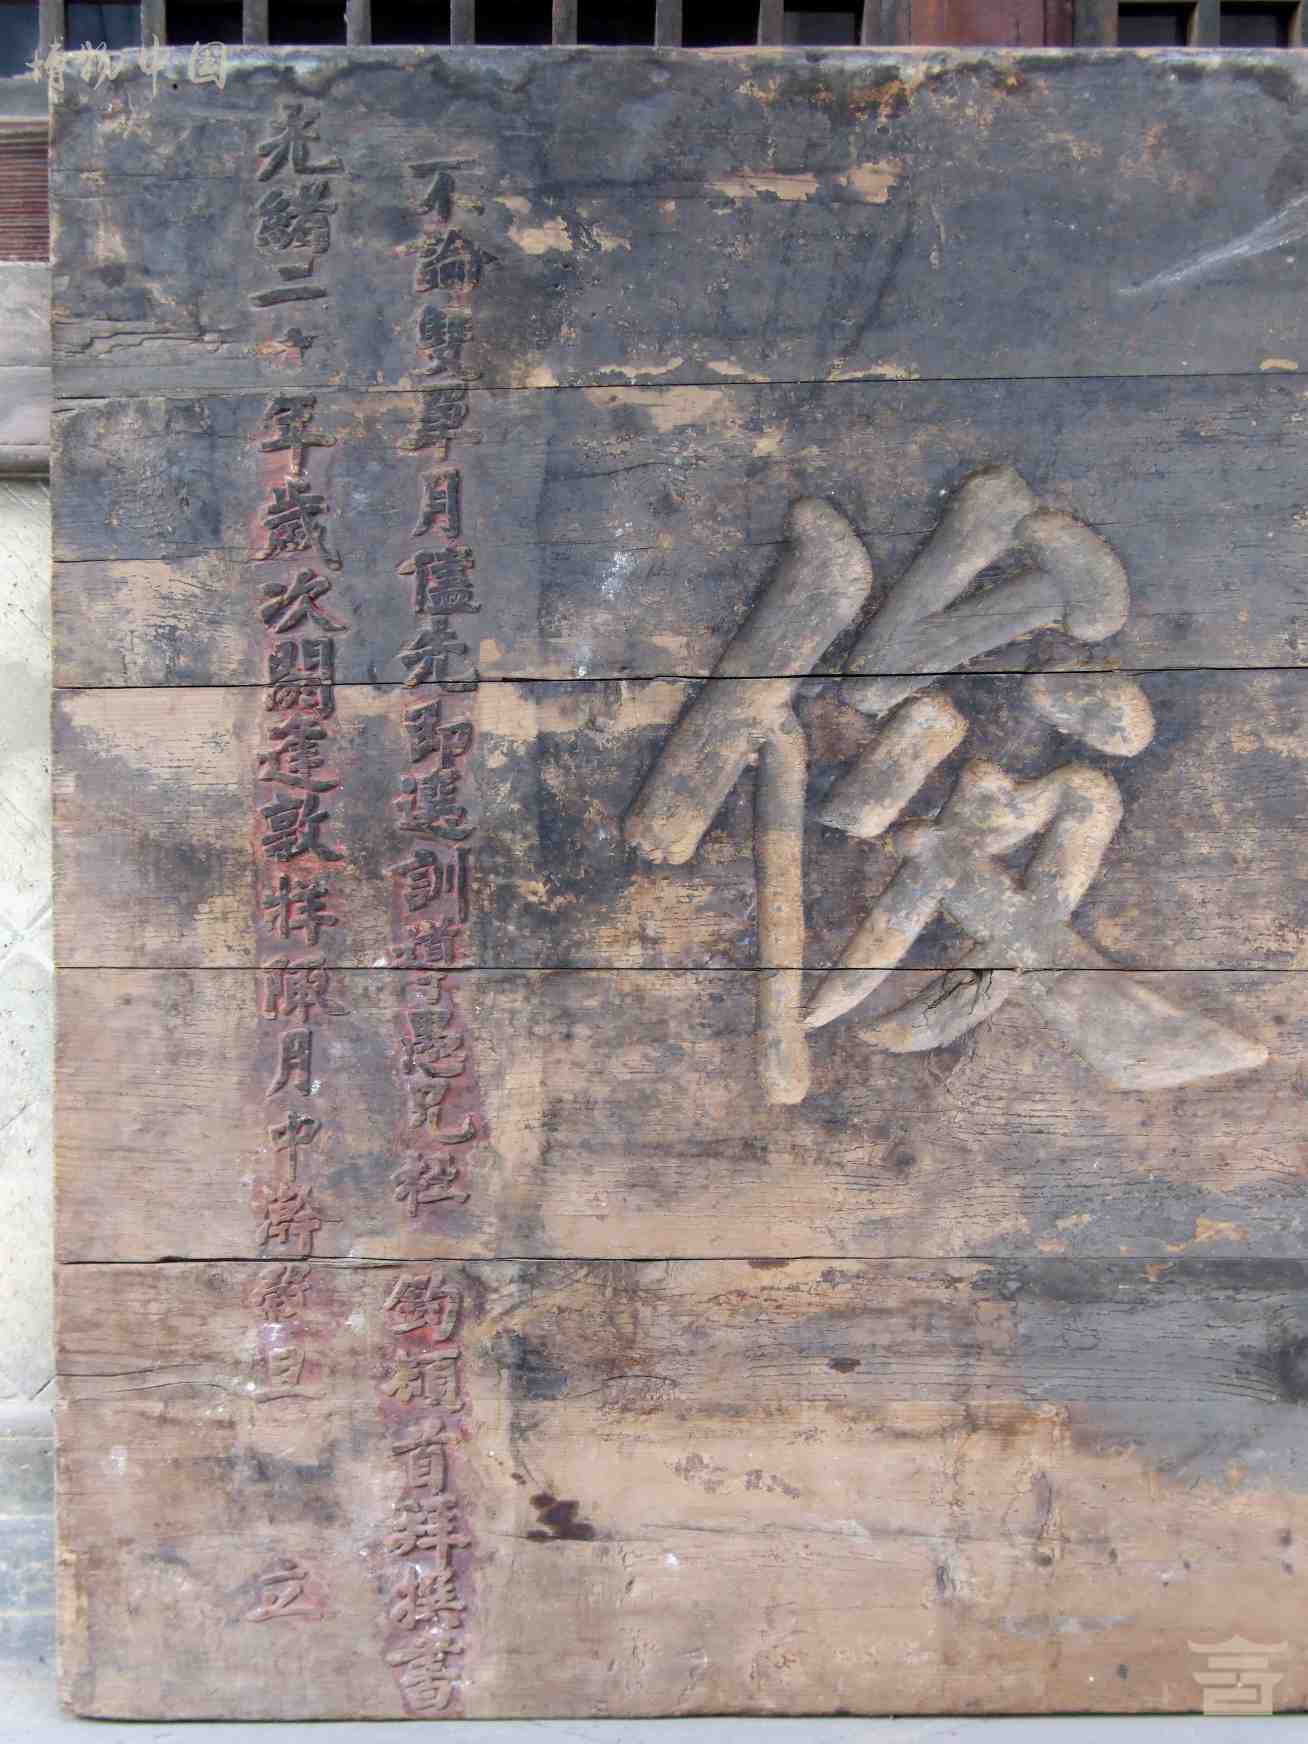 俊
不論雙單月儘先即選訓導愚兄杜 鈞頓首拜撰書
光緒二十年歲次閼逢敦牂陬月中澣穀旦 立
博物中国